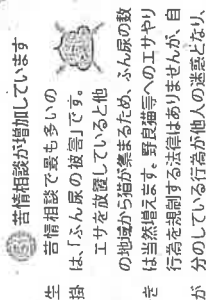 生
掲
き
が
苦情相談が増加しています
苦情相談で最も多いの
は、「ふん尿の被害」です。
エサを放置していると他
の地域から猫が集まるため、ふん尿の数
は当然増えます。野良猫等へのエサやり
行為を規制する法律はありませんが、自
分のしている行為が他人の迷惑となり、